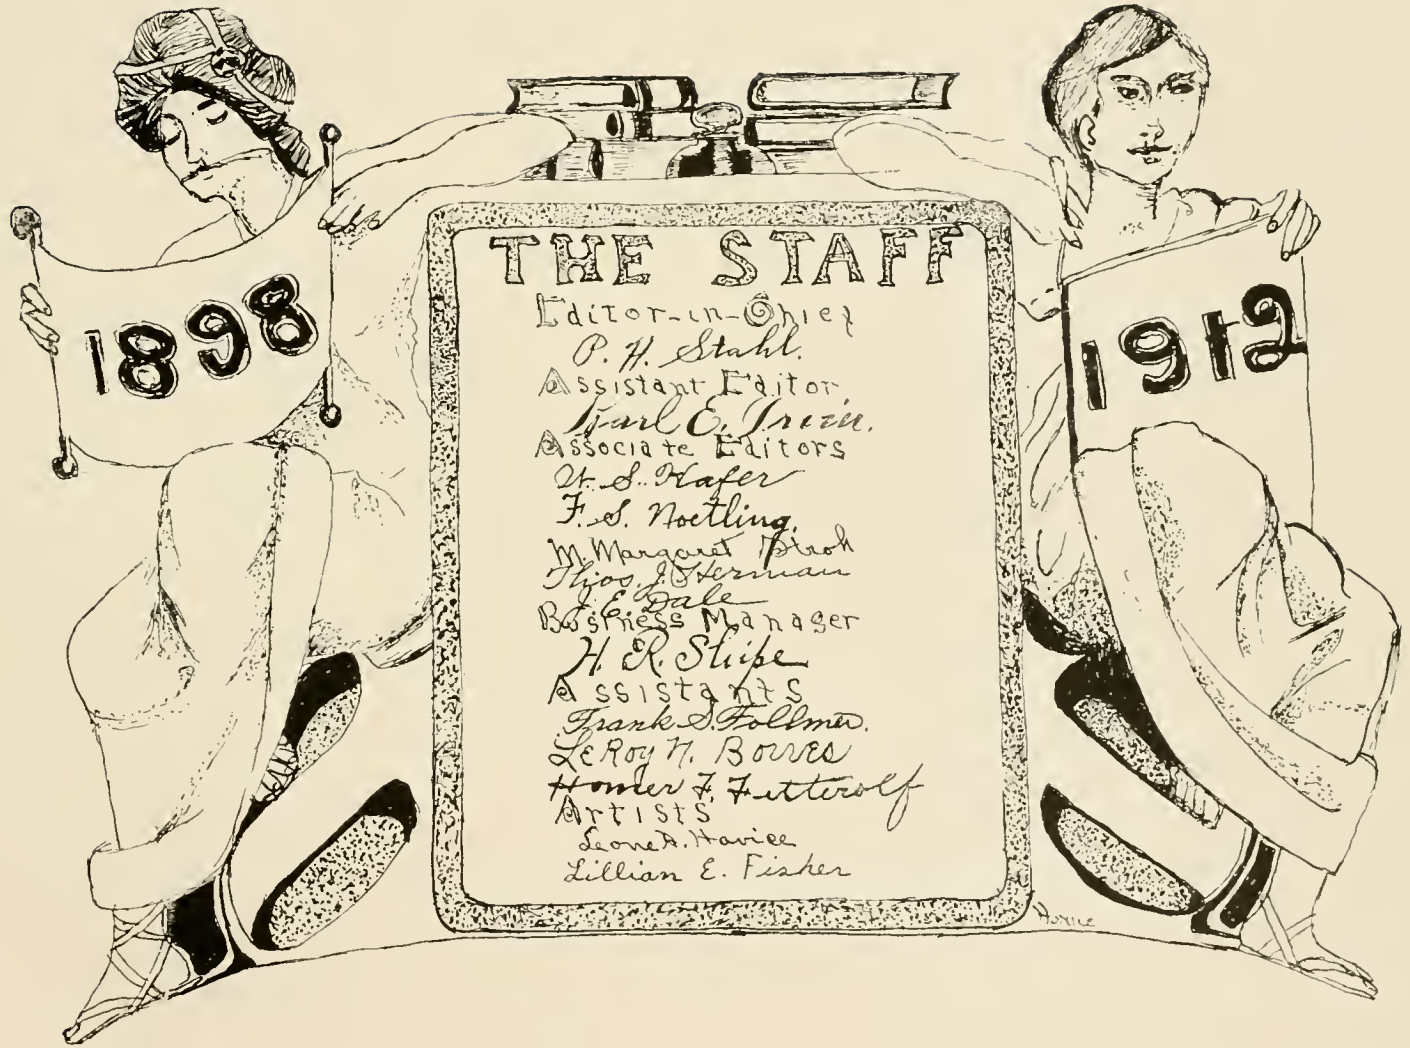 1898
1912
THE STAFF
Editor-in-Chief
P. H. Stahl.
Assistant Editor
Karl E. Irvin.
Associate Editors
W. S. Hafer
F. S. Noetling.
M. Margaret Stroh
Thos. J. Herman
J. E. Dale
Business Manager
H. R. Shipe
Assistants
Frank S. Follmer.
LeRoy N. Bowes
Homer F. Fetterolf
Artists
Leone A. Havice
Lillian E. Fisher
Havice